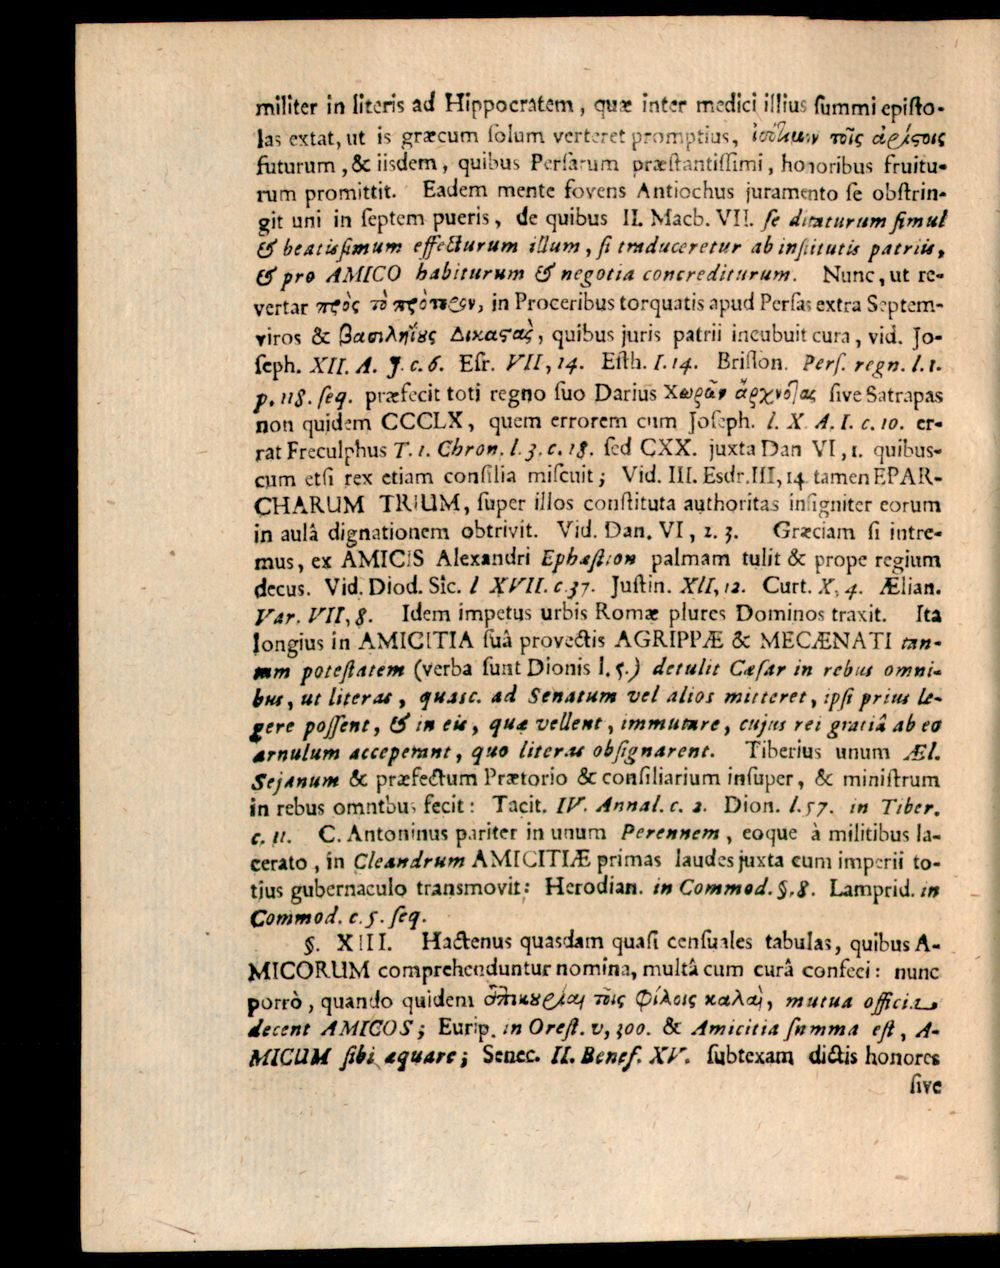 militer in literis ad Hippocratem, quæ inter medici illius ſummi epiſto-
las extat, ut is græcum ſolum verteret promptius, ἰσότιμον τοῖς ἀρίςοις
futurum, & iisdem, quibus Perſarum præſtantiſſimi, honoribus fruitu-
rum promittit. Eadem mente fovens Antiochus juramento ſe obſtrin-
git uni in ſeptem pueris, de quibus II. Macb. VII. ſe ditaturum ſimul
& beatisſimum effecturum illum, ſi traduceretur ab inſtitutis patriis,
& pro AMICO habiturum & negotia concrediturum. Nunc, ut re-
vertar πρὸς τὸ πρότερον, in Proceribus torquatis apud Perſas extra Septem-
viros & βασιληίους Δικαςὰς, quibus juris patrii incubuit cura, vid. Jo-
ſeph. XII. A. J. c. 6. Eſr. VII, 14. Eſth. I. 14. Briſſon. Perſ. regn. l. 1.
p. 118. ſeq. præfecit toti regno ſuo Darius Χωρῶν ἄρχοντας ſive Satrapas
non quidem CCCLX, quem errorem cum Joſeph. l. X. A. I. c. 10. er-
rat Freculphus T. 1. Chron. l. 3. c. 18. ſed CXX. juxta Dan VI, 1. quibus-
cum etſi rex etiam conſilia miſcuit; Vid. III. Esdr. III, 14. tamen EPAR-
CHARUM TRIUM, ſuper illos conſtituta authoritas inſigniter eorum
in aulâ dignationem obtrivit. Vid. Dan. VI, 2. 3. Græciam ſi intre-
mus, ex AMICIS Alexandri Ephæſtion palmam tulit & prope regium
decus. Vid. Diod. Sic. l XVII. c. 37. Juſtin. XII, 12. Curt. X, 4. Ælian.
Var. VII, 8. Idem impetus urbis Romæ plures Dominos traxit. Ita
longius in AMICITIA ſuâ provectis AGRIPPÆ & MECÆNATI tan-
tam poteſtatem (verba ſunt Dionis l. 5.) detulit Cæſar in rebus omni-
bus, ut literas, quasc. ad Senatum vel alios mitteret, ipſi prius le-
gere poſſent, & in eis, quæ vellent, immutare, cujus rei gratiâ ab eo
annulum acceperant, quo literas obſignarent. Tiberius unum Æl.
Sejanum & præfectum Prætorio & conſiliarium inſuper, & miniſtrum
in rebus omntbus fecit: Tacit. IV. Annal. c. 2. Dion. l. 57. in Tiber.
c. 11. C. Antoninus pariter in unum Perennem, eoque à militibus la-
cerato, in Cleandrum AMICITIÆ primas laudes juxta cum imperii to-
tius gubernaculo transmovit: Herodian. in Commod. §. 8. Lamprid. in
Commod. c. 5. ſeq.
§. XIII. Hactenus quasdam quaſi cenſuales tabulas, quibus A-
MICORUM comprehenduntur nomina, multâ cum curâ confeci: nunc
porrò, quando quidem ἐπικουρίαι τοῖς φίλοις καλαὶ, mutua officia
decent AMICOS; Eurip. in Oreſt. v, 300. & Amicitia ſumma eſt, A-
MICUM ſibi æquare; Senec. II. Benef. XV. ſubtexam dictis honores
ſive